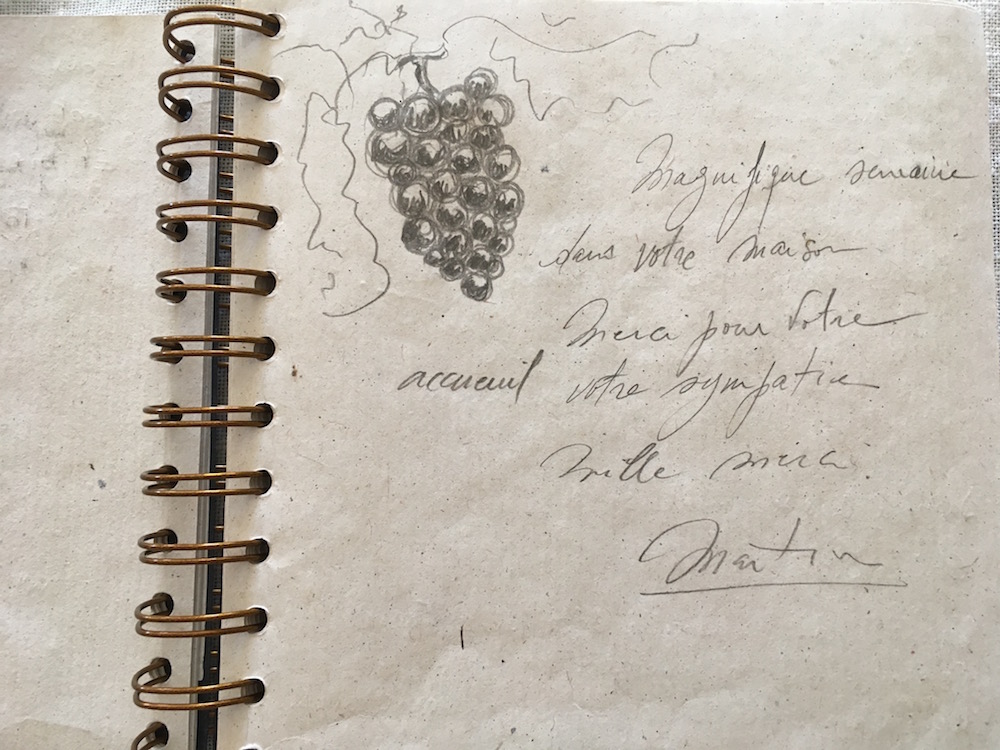 Magnifique semaine
dans votre maison
Merci pour Votre
accueuil votre sympatie
Mille merci
Martin